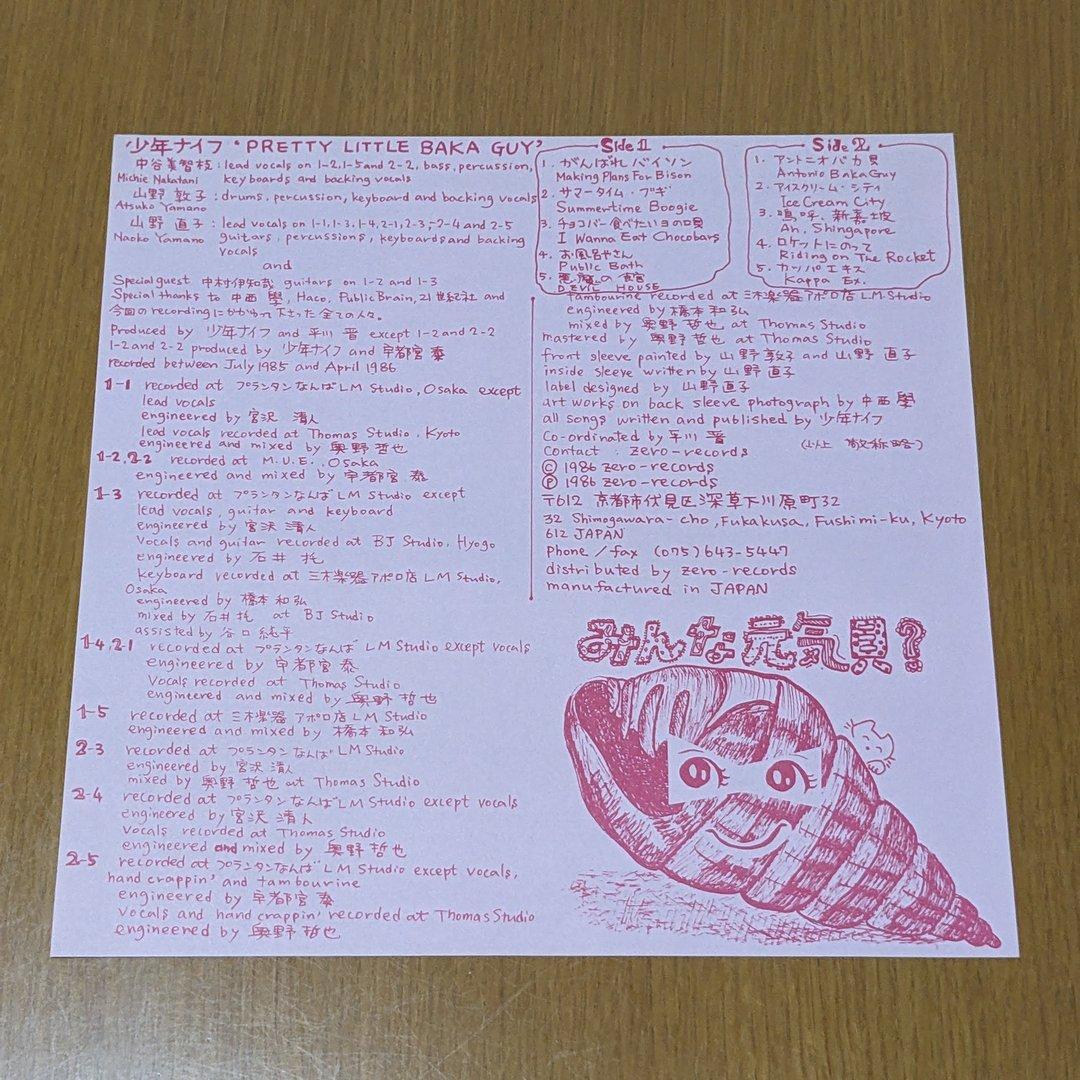 少年ナイフ 'PRETTY LITTLE BAKA GUY'
中谷美智枝 : lead vocals on 1-2, 1-5 and 2-2, bass, percussion,
Michie Nakatani keyboards and backing vocals
山野 敦子 : drums, percussion, keyboard and backing vocals
Atsuko Yamano
山野 直子 : lead vocals on 1-1, 1-3, 1-4, 2-1, 2-3, 2-4 and 2-5
Naoko Yamano guitars, percussions, keyboards and backing
vocals
and
Special guest 中村伊知哉 guitars on 1-2 and 1-3
Special thanks to 中西 學, Haco, Public Brain, 21世紀社 and
今回のrecordingにかかわって下さった全ての人々。
Produced by 少年ナイフ and 平川 晋 except 1-2 and 2-2
1-2 and 2-2 produced by 少年ナイフ and 宇都宮 泰
recorded between July 1985 and April 1986
1-1 recorded at プランタンなんば LM Studio, Osaka except
lead vocals
engineered by 宮沢 清人
lead vocals recorded at Thomas Studio, Kyoto
engineered and mixed by 奥野 哲也
1-2, 2-2 recorded at M.U.E., Osaka
engineered and mixed by 宇都宮 泰
1-3 recorded at プランタンなんば LM Studio except
lead vocals, guitar and keyboard
engineered by 宮沢 清人
Vocals and guitar recorded at BJ Studio, Hyogo
engineered by 石井 托
keyboard recorded at 三木楽器アポロ店 LM Studio,
Osaka
engineered by 橋本 和弘
mixed by 石井 托 at BJ Studio
assisted by 谷口 純平
1-4, 2-1 recorded at プランタンなんば LM Studio except vocals
engineered by 宇都宮 泰
Vocals recorded at Thomas Studio
engineered and mixed by 奥野 哲也
1-5 recorded at 三木楽器 アポロ店 LM Studio
engineered and mixed by 橋本 和弘
2-3 recorded at プランタンなんば LM Studio
engineered by 宮沢 清人
mixed by 奥野 哲也 at Thomas Studio
2-4 recorded at プランタンなんば LM Studio except vocals
engineered by 宮沢 清人
Vocals recorded at Thomas Studio
engineered and mixed by 奥野 哲也
2-5 recorded at プランタンなんば LM Studio except vocals,
hand crappin' and tambourine
engineered by 宇都宮 泰
Vocals and hand crappin' recorded at Thomas Studio
engineered by 奥野 哲也
Side 1
1. がんばれ バイソン
Making Plans For Bison
2. サマータイム・ブギ
Summertime Boogie
3. チョコバー食べたいヨの貝
I Wanna Eat Chocobars
4. お風呂やさん
Public Bath
5. 悪魔の館
DEVIL HOUSE
Side 2
1. アントニオバカ貝
Antonio Baka Guy
2. アイスクリーム・シティ
Ice Cream City
3. 嗚呼、新嘉坡
Ah, Shingapore
4. ロケットにのって
Riding on The Rocket
5. カッパエキス
Kappa Ex.
tambourine recorded at 三木楽器アポロ店 LM Studio
engineered by 橋本 和弘
mixed by 奥野 哲也 at Thomas Studio
mastered by 奥野 哲也 at Thomas Studio
front sleeve painted by 山野 敦子 and 山野 直子
inside sleeve written by 山野 直子
label designed by 山野 直子
art works on back sleeve photograph by 中西 學
all songs written and published by 少年ナイフ
Co-ordinated by 平川 晋 (以上 敬称略)
Contact : zero-records
© 1986 zero-records
Ⓟ 1986 zero-records
〒612 京都市伏見区深草下川原町32
32 Shimogawara-cho, Fukakusa, Fushimi-ku, Kyoto
612 JAPAN
Phone/fax (075) 643-5447
distributed by zero-records
manufactured in JAPAN
みんな元気貝?